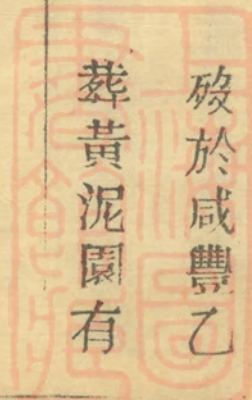 歿於咸豐乙
葬黃泥園有